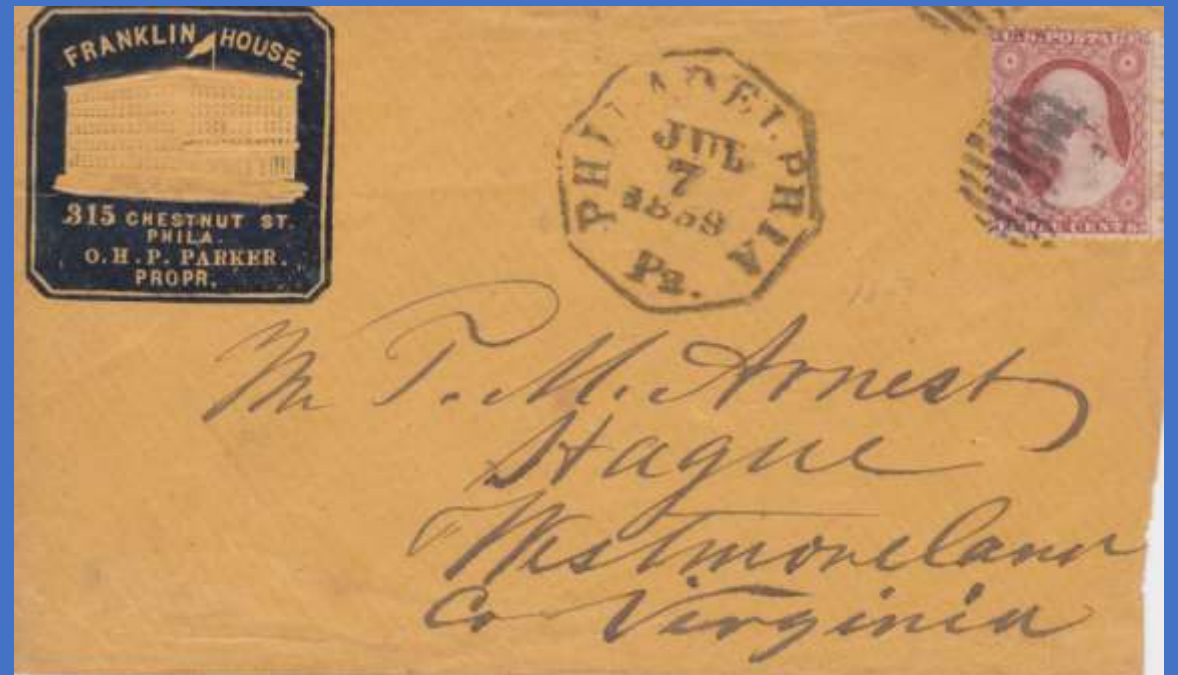 FRANKLIN HOUSE.
315 CHESTNUT ST.
PHILA.
O.H.P. PARKER.
PROPR.
PHILADELPHIA
JUL
7
1859
Pa.
U.S. POSTAGE
THREE CENTS
Mr T. M. Arnest
Hague
Westmoreland
Co Virginia